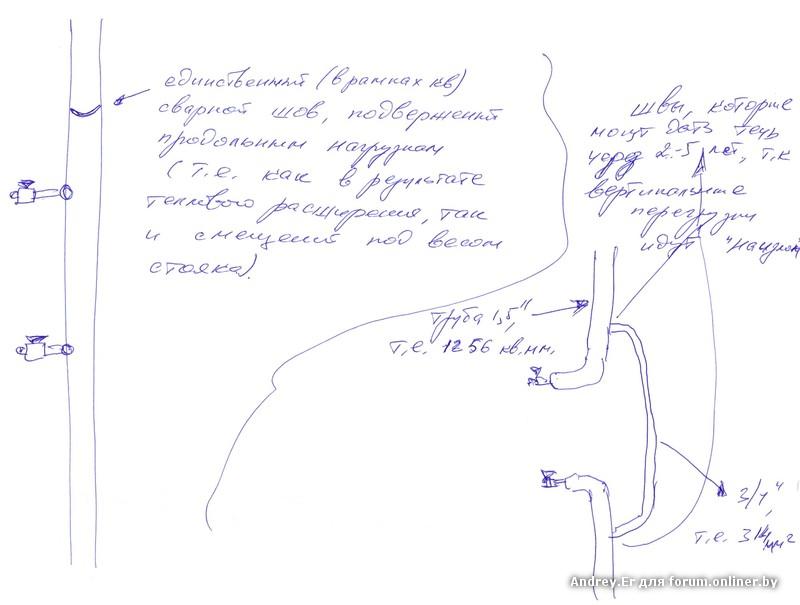 единственный (в рамках кв)
сварной шов, подверженный
продольным нагрузкам
(т.е. как в результате
теплового расширения, так
и смещений под весом
стояка).
швы, которые
могут дать течь
через 2-5 лет, т.к
вертикальные
перегрузки
идут "на излом"
труба 1,5",
т.е. 1256 кв.мм.
3/4",
т.е. 314 мм2
Andrey.Er для forum.onliner.by